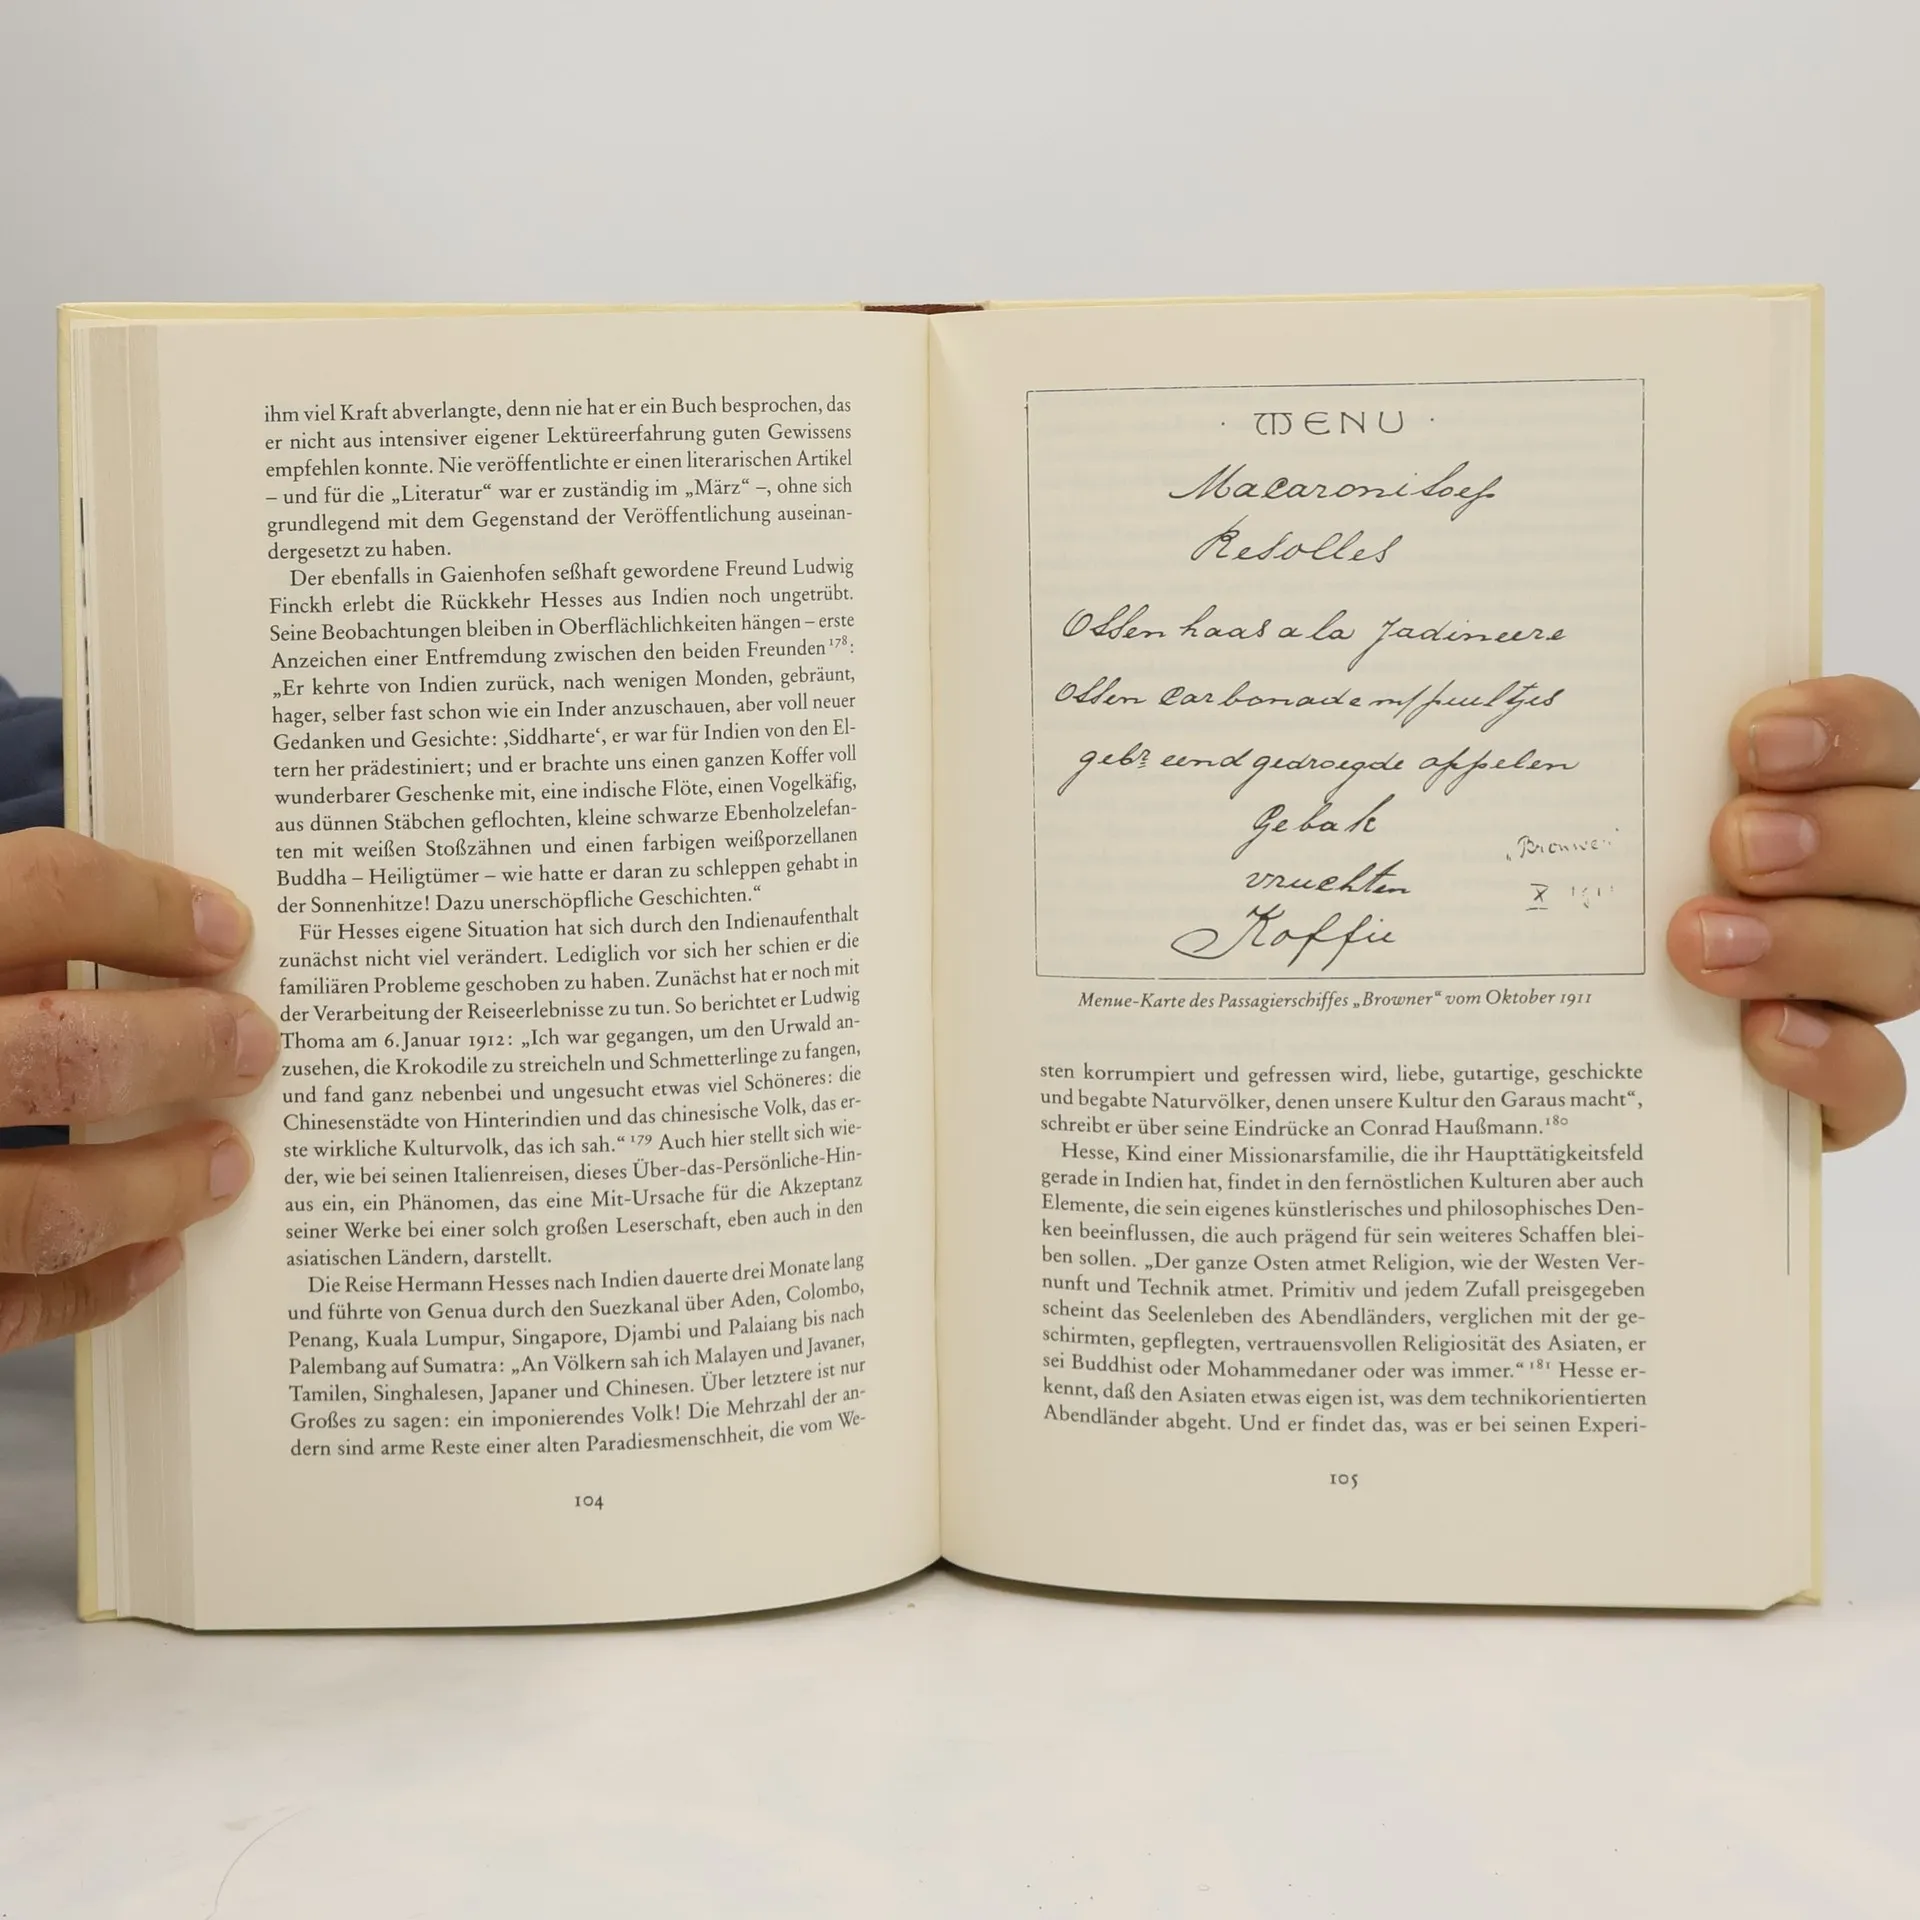 ihm viel Kraft abverlangte, denn nie hat er ein Buch besprochen, das
er nicht aus intensiver eigener Lektüreerfahrung guten Gewissens
empfehlen konnte. Nie veröffentlichte er einen literarischen Artikel
– und für die „Literatur“ war er zuständig im „März“ –, ohne sich
grundlegend mit dem Gegenstand der Veröffentlichung auseinan-
dergesetzt zu haben.
Der ebenfalls in Gaienhofen seßhaft gewordene Freund Ludwig
Finckh erlebt die Rückkehr Hesses aus Indien noch ungetrübt.
Seine Beobachtungen bleiben in Oberflächlichkeiten hängen – erste
Anzeichen einer Entfremdung zwischen den beiden Freunden¹⁷⁸:
„Er kehrte von Indien zurück, nach wenigen Monden, gebräunt,
hager, selber fast schon wie ein Inder anzuschauen, aber voll neuer
Gedanken und Gesichte: ‚Siddharte‘, er war für Indien von den El-
tern her prädestiniert; und er brachte uns einen ganzen Koffer voll
wunderbarer Geschenke mit, eine indische Flöte, einen Vogelkäfig,
aus dünnen Stäbchen geflochten, kleine schwarze Ebenholzelefan-
ten mit weißen Stoßzähnen und einen farbigen weißporzellanen
Buddha – Heiligtümer – wie hatte er daran zu schleppen gehabt in
der Sonnenhitze! Dazu unerschöpfliche Geschichten.“
Für Hesses eigene Situation hat sich durch den Indienaufenthalt
zunächst nicht viel verändert. Lediglich vor sich her schien er die
familiären Probleme geschoben zu haben. Zunächst hat er noch mit
der Verarbeitung der Reiseerlebnisse zu tun. So berichtet er Ludwig
Thoma am 6. Januar 1912: „Ich war gegangen, um den Urwald an-
zusehen, die Krokodile zu streicheln und Schmetterlinge zu fangen,
und fand ganz nebenbei und ungesucht etwas viel Schöneres: die
Chinesenstädte von Hinterindien und das chinesische Volk, das er-
ste wirkliche Kulturvolk, das ich sah.“ ¹⁷⁹ Auch hier stellt sich wie-
der, wie bei seinen Italienreisen, dieses Über-das-Persönliche-Hin-
aus ein, ein Phänomen, das eine Mit-Ursache für die Akzeptanz
seiner Werke bei einer solch großen Leserschaft, eben auch in den
asiatischen Ländern, darstellt.
Die Reise Hermann Hesses nach Indien dauerte drei Monate lang
und führte von Genua durch den Suezkanal über Aden, Colombo,
Penang, Kuala Lumpur, Singapore, Djambi und Palaiang bis nach
Palembang auf Sumatra: „An Völkern sah ich Malayen und Javaner,
Tamilen, Singhalesen, Japaner und Chinesen. Über letztere ist nur
Großes zu sagen: ein imponierendes Volk! Die Mehrzahl der an-
dern sind arme Reste einer alten Paradiesmenschheit, die vom We-
104
· MENU ·
Macaronisoep
Resolles
Ossen haas a la Jadineere
Ossen carbonade m/puultjes
gebr eend gedroegde appelen
Gebak
vruchten
Koffie
X
Menue-Karte des Passagierschiffes „Browner“ vom Oktober 1911
sten korrumpiert und gefressen wird, liebe, gutartige, geschickte
und begabte Naturvölker, denen unsere Kultur den Garaus macht“,
schreibt er über seine Eindrücke an Conrad Haußmann.¹⁸⁰
Hesse, Kind einer Missionarsfamilie, die ihr Haupttätigkeitsfeld
gerade in Indien hat, findet in den fernöstlichen Kulturen aber auch
Elemente, die sein eigenes künstlerisches und philosophisches Den-
ken beeinflussen, die auch prägend für sein weiteres Schaffen blei-
ben sollen. „Der ganze Osten atmet Religion, wie der Westen Ver-
nunft und Technik atmet. Primitiv und jedem Zufall preisgegeben
scheint das Seelenleben des Abendländers, verglichen mit der ge-
schirmten, gepflegten, vertrauensvollen Religiosität des Asiaten, er
sei Buddhist oder Mohammedaner oder was immer.“ ¹⁸¹ Hesse er-
kennt, daß den Asiaten etwas eigen ist, was dem technikorientierten
Abendländer abgeht. Und er findet das, was er bei seinen Experi-
105